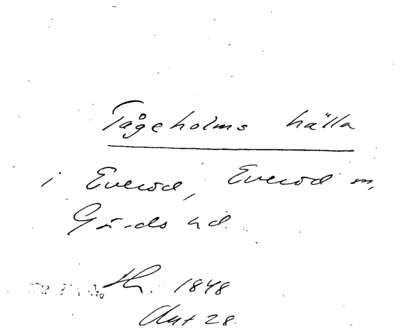 Tågeholms källa
i Everöd, Everöd sn,
Gärds hd.
1848
Ant 28.